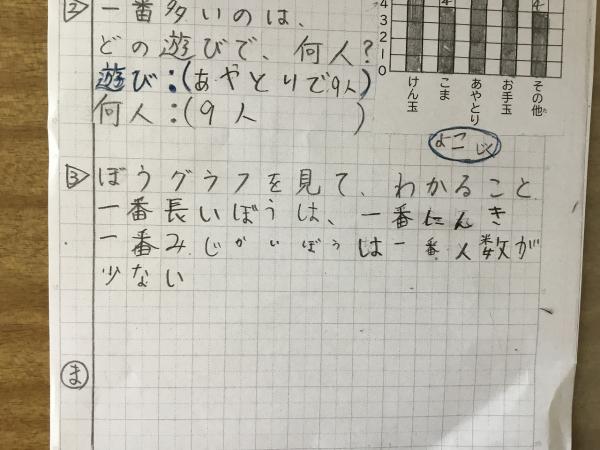 ② 一番多いのは、
どの遊びで、何人?
遊び:(あやとりで9人)
何人:(9人 )
4
3
2
1
0
けん玉
こま
あやとり
お手玉
その他
よこじく
③ ぼうグラフを見て、わかること
一番長いぼうは、一番にんき
一番みじかいぼうは一番人数が
少ない
ま